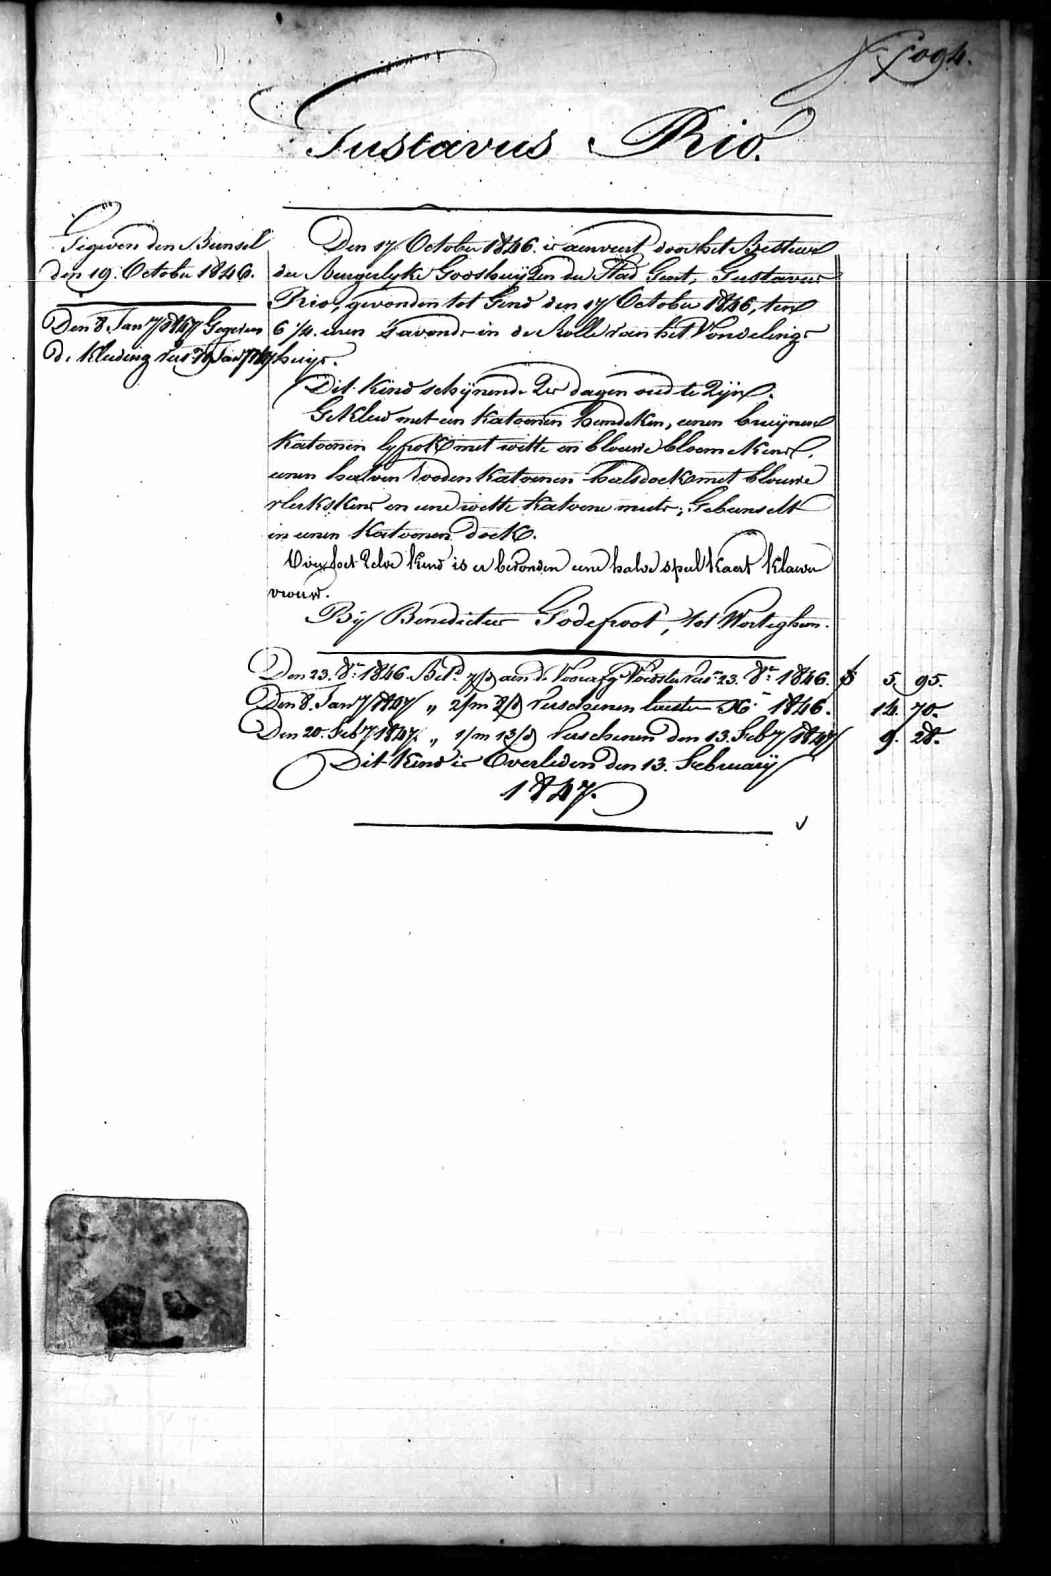 f° 1094.
Gustavus Rio.
Gegeven den Bunsel
den 19. October 1846.
Den 8. Jany 1847 Gegeven
de Kleeding
Den 17 October 1846. is aenveert door het Bestuer
der Burgerlyke Godshuyzen der Stad Gent, Gustavus
Rio, gevonden tot Gend den 17 October 1846, ten
6 ¾. uren s'avonds in de Rolle van het Vondelings
huys.
Dit Kind schynende 2er dagen oud te Zyn.
Gekleed met een katoenen hemdeken, eenen bruynen
Katoenen lyfrok met witte en blouwe bloemekens,
eenen halven rooden Katoenen halsdoek met blouwe
vlekskens en eene witte Katoene muts; Gebunselt
in eenen Katoenen doek.
Voor het Zelve Kind is er bevonden eene halve speelkaert klaver
vrouw.
By Benedictus Godefroot, tot Worteghem.
Den 23. 8r 1846. Bet. 7/d aen de Voorafg Voedster 23. 8r 1846. f 5. 95.
Den 8. Jany 1847 „ 2/m 8/d verschenen laesten Xr 1846. 14. 70.
Den 20. Feby 1847. „ 1/m 13/d Verschenen den 13. Feby 1847 9. 28.
Dit Kind is Overleden den 13. February
1847.